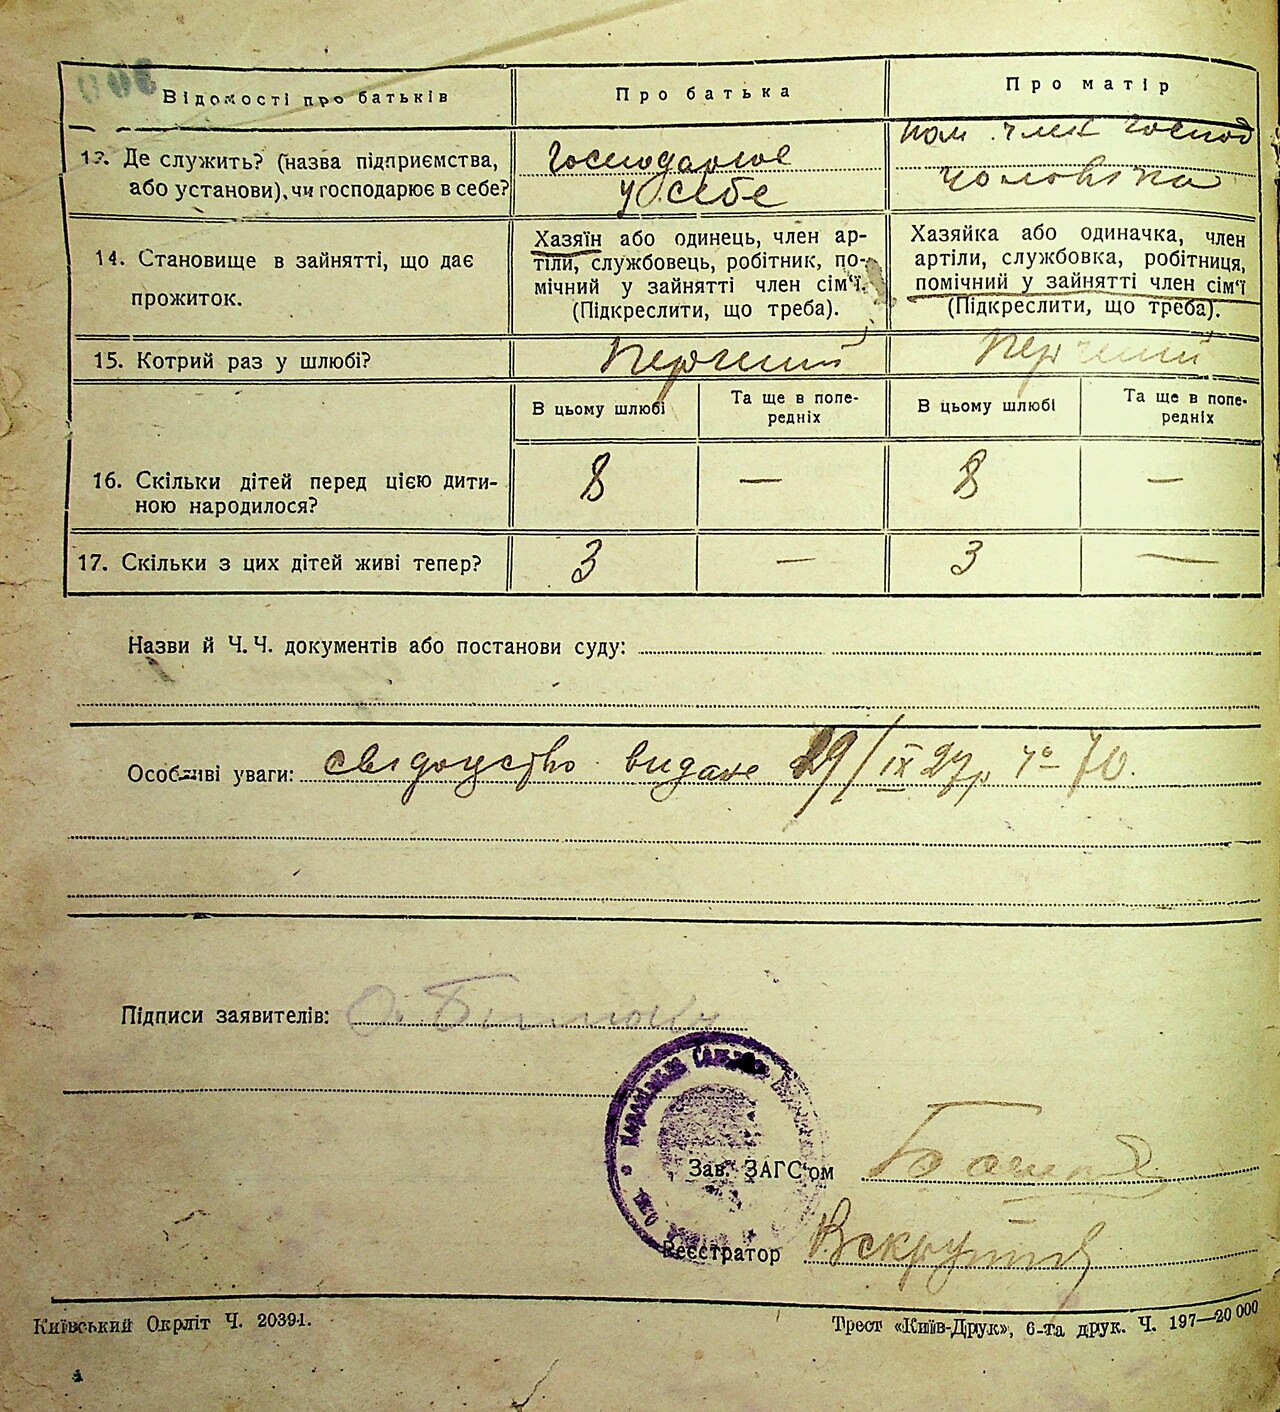 Відомості про батьків
Про батька
Про матір
13. Де служить? (назва підприємства,
або установи), чи господарює в себе?
Господарює
у себе
пом. член господ
чоловіка
14. Становище в зайнятті, що дає
прожиток.
Хазяїн або одинець, член ар-
тіли, службовець, робітник, по-
мічний у зайнятті член сім'ї.
(Підкреслити, що треба).
Хазяйка або одиначка, член
артіли, службовка, робітниця,
помічний у зайнятті член сім'ї
(Підкреслити, що треба).
15. Котрий раз у шлюбі?
Перший
Перший
В цьому шлюбі
Та ще в попе-
редніх
В цьому шлюбі
Та ще в попе-
редніх
16. Скільки дітей перед цією дити-
ною народилося?
8
—
8
—
17. Скільки з цих дітей живі тепер?
3
—
3
—
Назви й Ч. Ч. документів або постанови суду:
Особливі уваги: свідоцтво видане 29/IX 27р
Підписи заявителів: О.
Зав. ЗАГС'ом
Реєстратор
Київський Окрліт Ч. 20391.
Трест «Київ-Друк», 6-та друк. Ч. 197—20 000